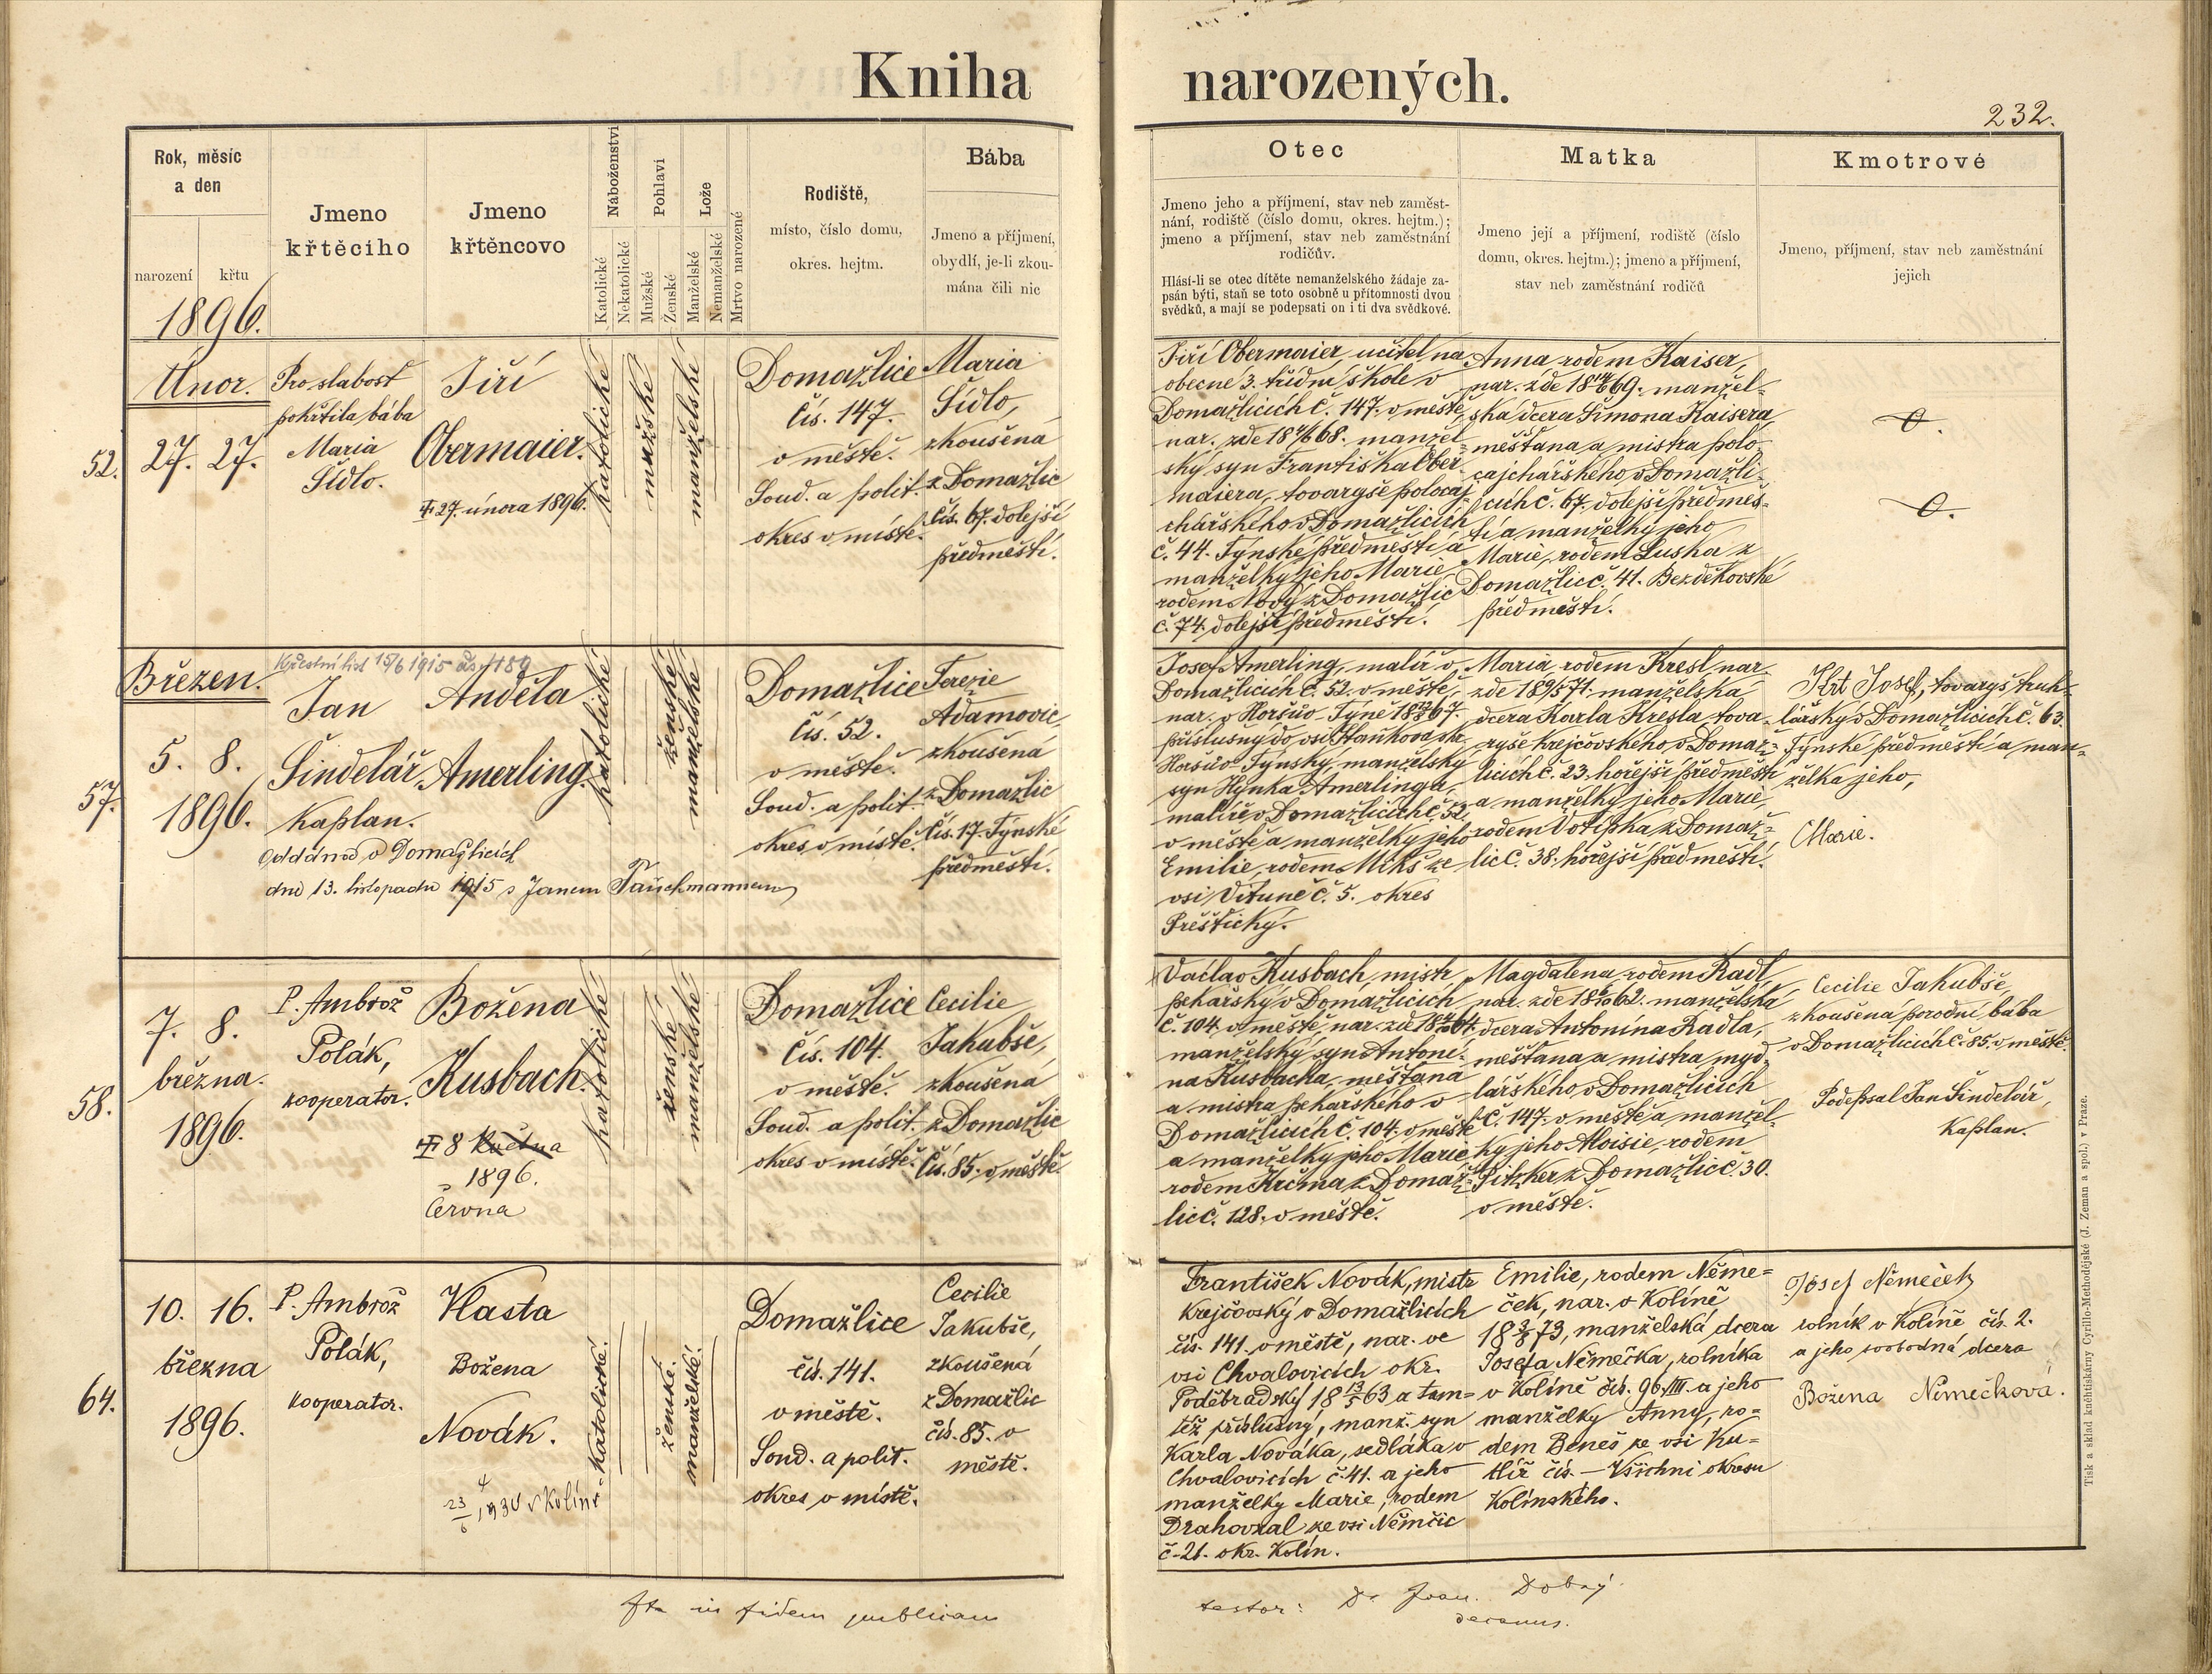 Kniha narozených.
232.
Rok, měsíc
a den
narození křtu
1896.
Jmeno
křtěcího
Jmeno
křtěncovo
Náboženství
Katolické
Nekatolické
Pohlaví
Mužské
Ženské
Lože
Manželské
Nemanželské
Mrtvo narozené
Rodiště,
místo, číslo domu,
okres. hejtm.
Bába
Jmeno a příjmení,
obydlí, je-li zkou-
mána čili nic
Otec
Jmeno jeho a příjmení, stav neb zaměst-
nání, rodiště (číslo domu, okres. hejtm.);
jmeno a příjmení, stav neb zaměstnání
rodičův.
Hlásí-li se otec dítěte nemanželského žádaje za-
psán býti, staň se toto osobně u přítomnosti dvou
svědků, a mají se podepsati on i ti dva svědkové.
Matka
Jmeno její a příjmení, rodiště (číslo
domu, okres. hejtm.); jmeno a příjmení,
stav neb zaměstnání rodičů
Kmotrové
Jmeno, příjmení, stav neb zaměstnání
jejich
52.
Únor.
27. 27.
Pro slabost
pokřtila bába
Maria
Sídlo.
Jiří
Obermaier.
27. února 1896.
katolické
mužské
manželské
Domažlice
čís. 147.
v městě.
Soud. a polit.
okres v místě.
Maria
Sídlo,
zkoušená
z Domažlic
čís. 67. dolejší
předměstí.
Jiří Obermaier, učitel na
obecné 3. třídní škole v
Domažlicích č. 147. v městě,
nar. zde 18 /6 68. manžel-
ský syn Františka Ober-
maiera, tovaryše polocaj-
chářského v Domažlicích
č. 44. Týnské předměstí a
manželky jeho Marie
rodem Nový z Domažlic
č. 74. dolejší předměstí.
Anna rodem Kaiser,
nar. zde 18 69. manžel-
ská dcera Šimona Kaisera,
měšťana a mistra polo-
cajchářského v Domažli-
cích č. 67. dolejší předměs-
tí a manželky jeho
Marie, rodem Luska z
Domažlic č. 41. Bezděkovské
předměstí.
0.
0.
57.
Březen.
5. 8.
1896.
Křestní list 15/6 1915 čís. 1189
Jan
Šindelář
kaplan.
Anděla
Amerling.
Oddána v Domažlicích
dne 13. listopadu 1915 s Janem Tauschmannem
katolické
ženské
manželské
Domažlice
čís. 52.
v městě.
Soud. a polit.
okres v místě.
Terezie
Adamovic,
zkoušená
z Domažlic
čís. 17. Týnské
předměstí.
Josef Amerling, malíř v
Domažlicích č. 52. v městě,
nar. v Horšův-Týně 18 67.
příslušný do vsi Staňkova okr.
Horšův Týnský, manželský
syn Hynka Amerlinga,
malíře v Domažlicích č. 52
v městě a manželky jeho
Emilie, rodem Mikš ze
vsi Vítuně č. 5. okres
Přeštický.
Maria rodem Kresl nar.
zde 18 9/5 71. manželská
dcera Karla Kresla, tova-
ryše krejčovského v Domaž-
licích č. 23. hořejší předměstí
a manželky jeho Marie,
rodem Votipka z Domaž-
lic č. 38. hořejší předměstí.
Krt Josef, tovaryš truh-
lářský v Domažlicích č. 63.
Týnské předměstí a man-
želka jeho,
Marie.
58.
7. 8.
března.
1896.
P. Ambrož
Polák,
kooperator.
Božena
Kusbach.
8 května
1896.
června
katolické
ženské
manželské
Domažlice
čís. 104.
v městě.
Soud. a polit.
okres v místě.
Cecilie
Jakubše,
zkoušená
z Domažlic
čís. 85. v městě.
Václav Kusbach, mistr
pekařský v Domažlicích
č. 104. v městě, nar. zde 18 64.
manželský syn Antoní-
na Kusbacha, měšťana
a mistra pekařského v
Domažlicích č. 104. v městě
a manželky jeho Marie
rodem Krčma z Domaž-
lic č. 128. v městě.
Magdalena rodem Radl
nar. zde 18 62. manželská
dcera Antonína Radla,
měšťana a mistra myd-
lářského v Domažlicích
č. 147. v městě a manžel-
ky jeho Aloisie, rodem
Pitzker z Domažlic č. 30.
v městě.
Cecilie Jakubše,
zkoušená porodní bába
v Domažlicích č. 85. v městě.
Podepsal Jan Šindelář,
kaplan.
64.
10. 16.
března
1896.
P. Ambrož
Polák,
kooperator.
Vlasta
Božena
Novák.
23/6 1934 v Kolíně
katolické.
ženské.
manželské.
Domažlice
čís. 141.
v městě.
Soud. a polit.
okres v místě.
Cecilie
Jakubše,
zkoušená
z Domažlic
čís. 85. v
městě.
František Novák, mistr
krejčovský v Domažlicích
čís. 141. v městě, nar. ve
vsi Chvalovicích okr.
Poděbradský 18 13/5 63 a tam-
též příslušný, manž. syn
Karla Nováka, sedláka v
Chvalovicích č. 41. a jeho
manželky Marie, rodem
Drahovzal ze vsi Němčic
č. 21. okr. Kolín.
Emilie, rodem Něme-
ček, nar. v Kolíně,
18 3/8 73, manželská dcera
Josefa Němečka, rolníka
v Kolíně čís. 96./III. a jeho
manželky Anny, ro-
dem Beneš ze vsi Ku-
tlíř čís. — Všichni okresu
Kolínského.
Josef Němeček
rolník v Kolíně čís. 2.
a jeho svobodná dcera
Božena Němečková.
Ita in fidem publicam
testor: Dr Joan. Dobrý
decanus.
Tisk a sklad knihtiskárny Cyrillo-Methodějské (J. Zeman a spol.) v Praze.